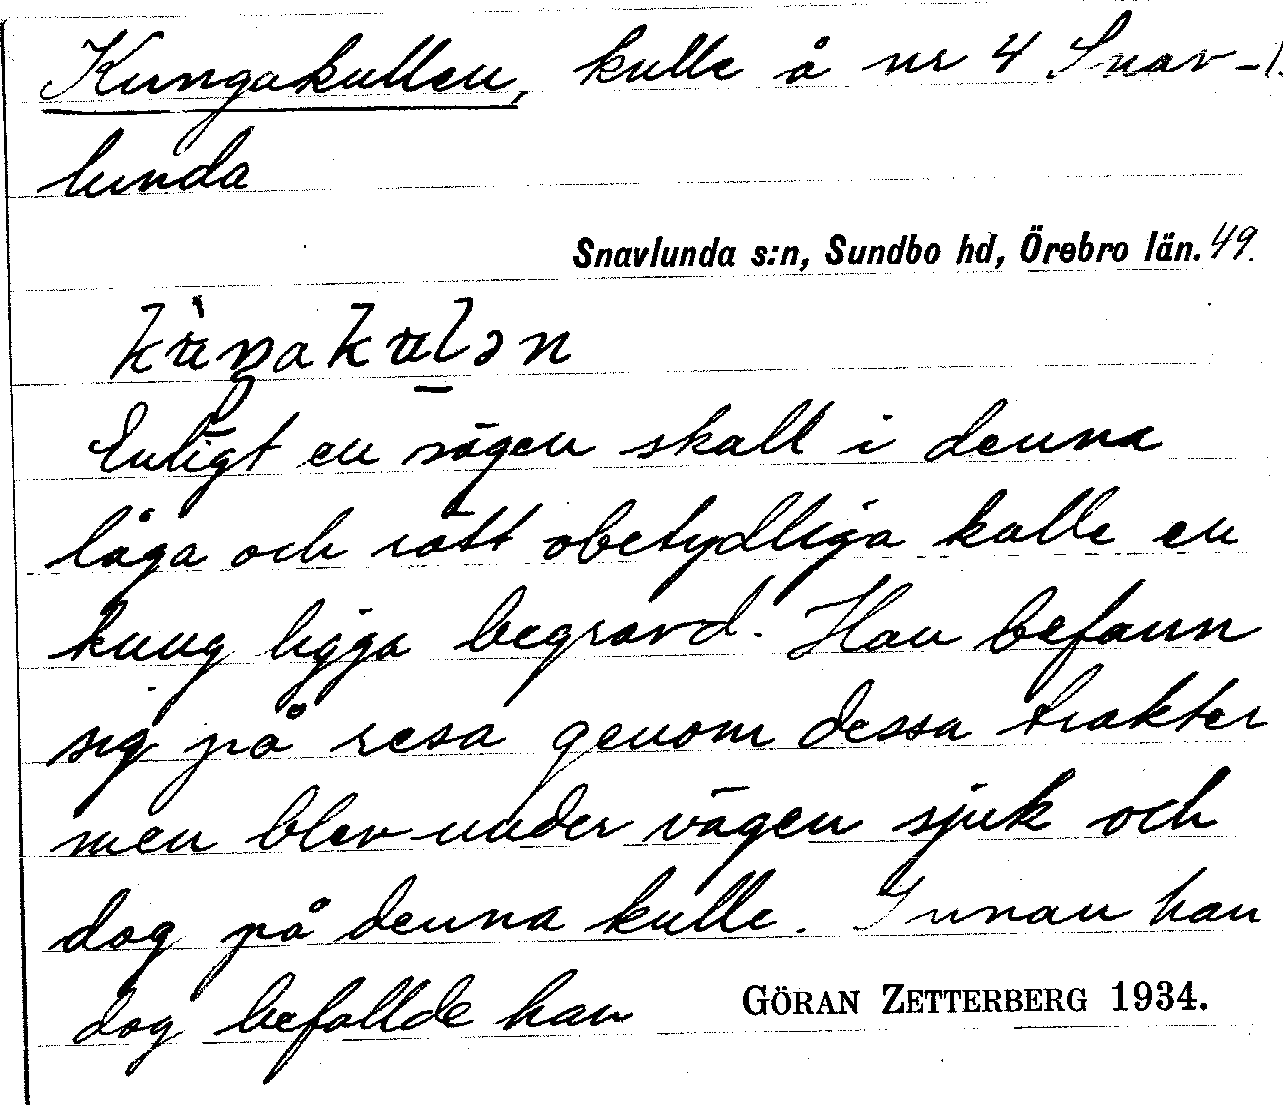 Kungakullen, kulle å nr 4 Snav-1.
lunda
Snavlunda s:n, Sundbo hd, Örebro län. 49.
Enligt en sägen skall i denna
låga och rätt obetydliga kulle en
kung ligga begravd. Han befann
sig på resa genom dessa trakter
men blev under vägen sjuk och
dog på denna kulle. Innan han
dog befallde han
GÖRAN ZETTERBERG 1934.